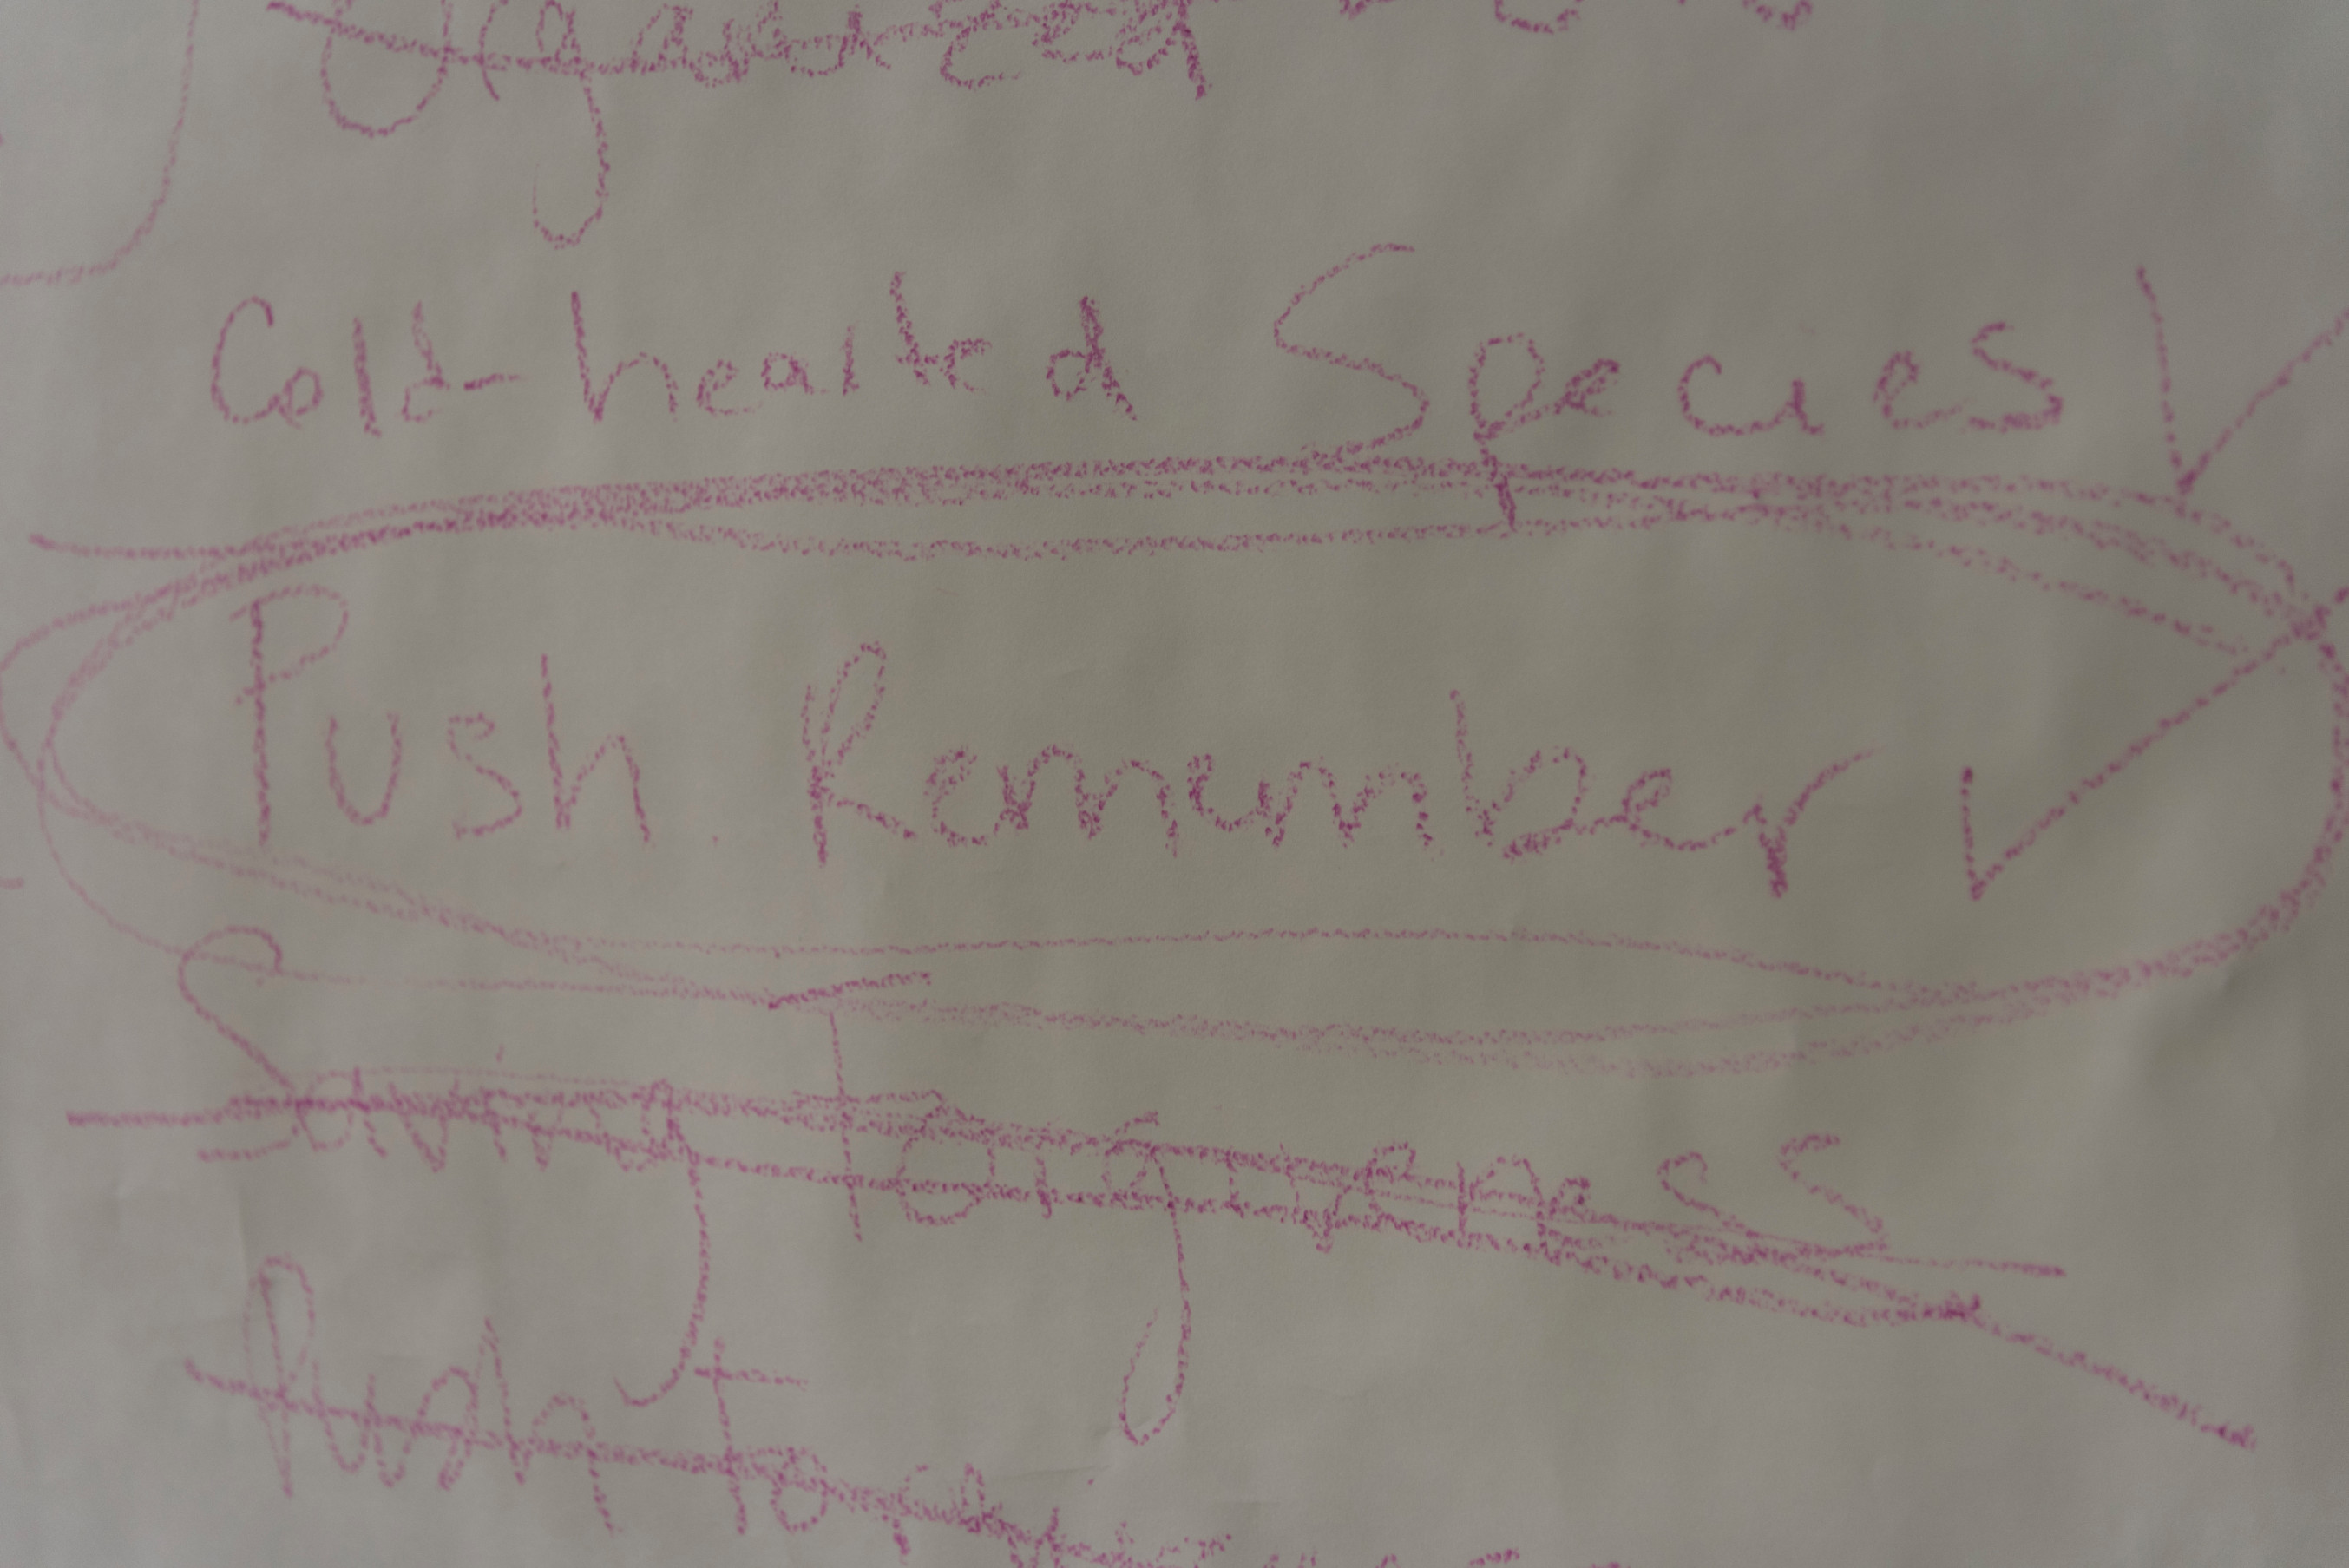 Cold-hearted Species
Push Remember
Saving Forgiveness
Push to